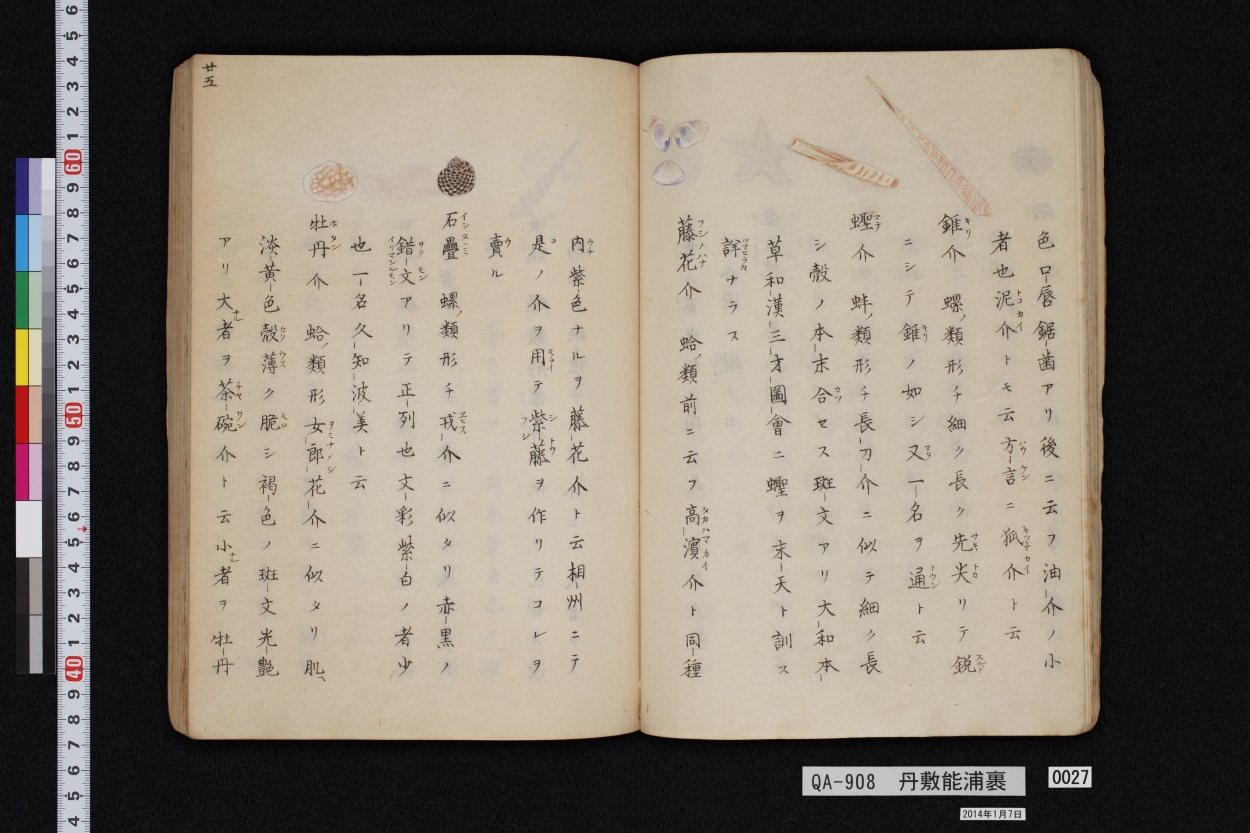 色口唇鋸歯アリ後ニ云フ油介ノ小
者也泥介トモ云方言ニ狐介ト云
錐介 螺ノ類形チ細ク長ク先尖リテ鋭
ニシテ錐ノ如シ又一名ヲ通ト云
蟶介 蚌ノ類形チ長刀介ニ似テ細ク長
シ殻ノ本末合セス斑文アリ大和本
草和漢三才圖會ニ蟶ヲ末天ト訓ス
詳ナラス
藤花介 蛤ノ類前ニ云フ高濱介ト同種
廿五
内紫色ナルヲ藤花介ト云相州ニテ
是ノ介ヲ用テ紫藤ヲ作リテコレヲ
賣ル
石疊 螺ノ類形チ戎介ニ似タリ赤黒ノ
錯文アリテ正列也文彩紫白ノ者少
也一名久知波美ト云
牡丹介 蛤ノ類形女郎花介ニ似タリ肌
淡黄色殻薄ク脆シ褐色ノ斑文光艶
アリ大者ヲ茶碗介ト云小者ヲ牡丹
QA-908 丹敷能浦裹
0027
2014年1月7日